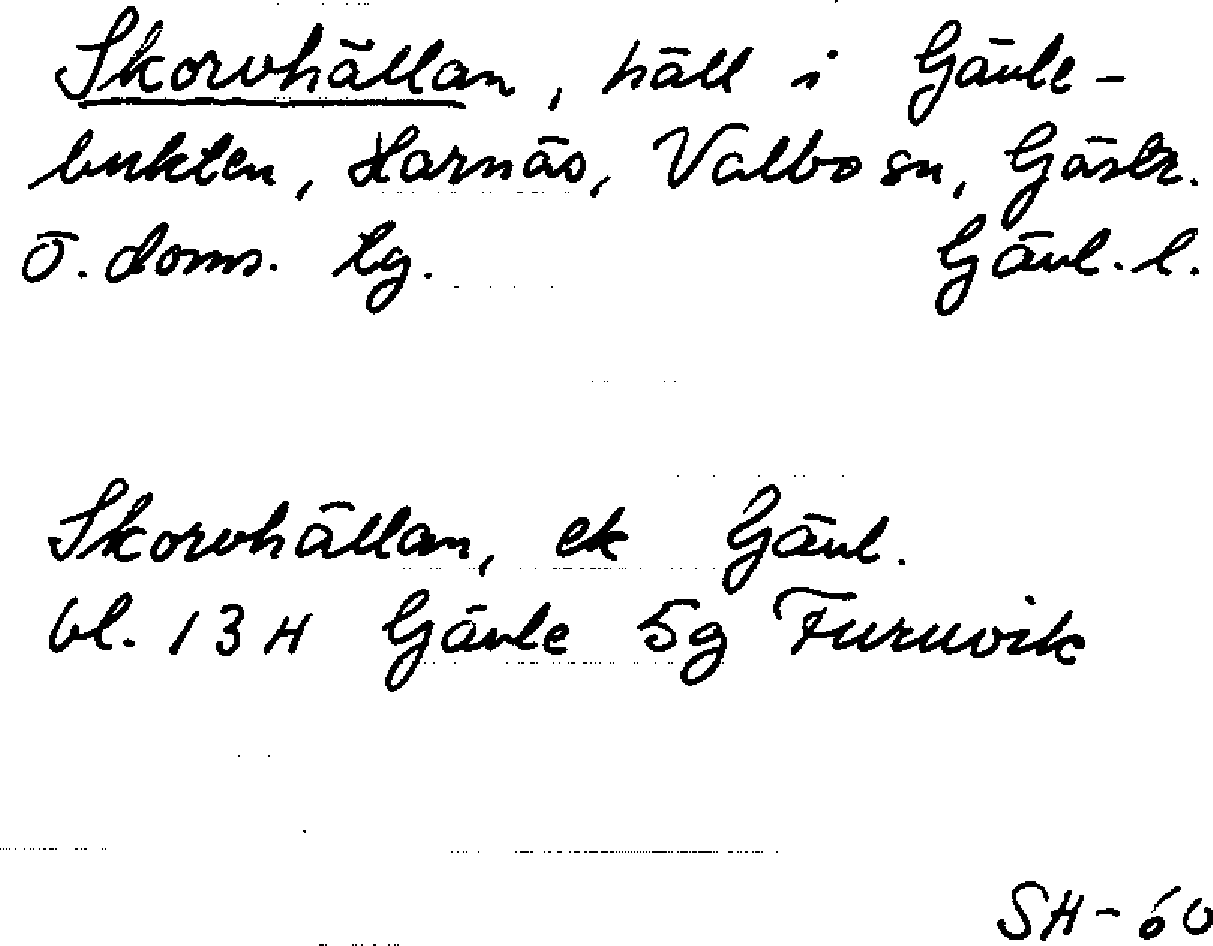 Skorvhällan, häll i Gävle-
bukten, Harnäs, Valbo sn, Gästr.
ö. doms. tg. Gävl. l.
Skorvhällan, ek Gävl.
bl. 13H Gävle 5g Furuvik
SH-60